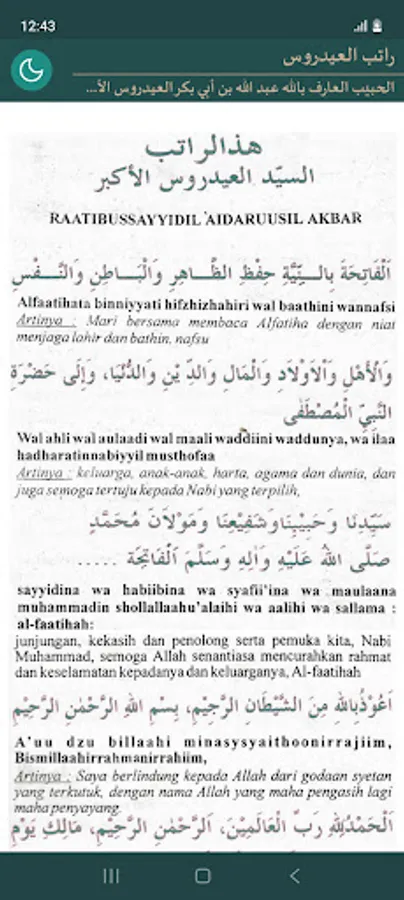 12:43
راتب العيدروس
الحبيب العارف بالله عبد الله بن أبي بكر العيدروس الأ...
هذالراتب
السيّد العيدروس الأكبر
RAATIBUSSAYYIDIL 'AIDARUUSIL AKBAR
اَلْفَاتِحَةَ بِالنِّيَّةِ حِفْظِ الظَّاهِرِ وَالْبَاطِنِ وَالنَّفْسِ
Alfaatihata binniyyati hifzhizhahiri wal baathini wannafsi
Artinya : Mari bersama membaca Alfatiha dengan niat
menjaga lahir dan bathin, nafsu
وَالْأَهْلِ وَالْاَوْلَادِ وَالْمَالِ وَالدِّيْنِ وَالدُّنْيَا، وَإِلَى حَضْرَةِ
النَّبِيِّ الْمُصْطَفَى
Wal ahli wal aulaadi wal maali waddiini waddunya, wa ilaa
hadharatinnabiyyil musthofaa
Artinya : keluarga, anak-anak, harta, agama dan dunia, dan
juga semoga tertuju kepada Nabi yang terpilih,
سَيِّدِنَا وَحَبِيْبِنَا وَشَفِيْعِنَا وَمَوْلَانَ مُحَمَّدٍ
صَلَّى اللهُ عَلَيْهِ وَاَلِهِ وَسَلَّمَ اَلْفَاتِحَةَ .....
sayyidina wa habiibina wa syafii'ina wa maulaana
muhammadin shollallaahu'alaihi wa aalihi wa sallama :
al-faatihah:
junjungan, kekasih dan penolong serta pemuka kita, Nabi
Muhammad, semoga Allah senantiasa mencurahkan rahmat
dan keselamatan kepadanya dan keluarganya, Al-faatihah
اَعُوْذُبِاللهِ مِنَ الشَّيْطَانِ الرَّجِيْمِ، بِسْمِ اللهِ الرَّحْمٰنِ الرَّحِيْمِ
A'uu dzu billaahi minasysyaithoonirrajiim,
Bismillaahirrahmanirrahiim,
Artinya : Saya berlindung kepada Allah dari godaan syetan
yang terkutuk, dengan nama Allah yang maha pengasih lagi
maha penyayang.
اَلْحَمْدُلِلهِ رَبِّ الْعَالَمِيْنَ، اَلرَّحْمٰنِ الرَّحِيْمِ، مَالِكِ يَوْمِ